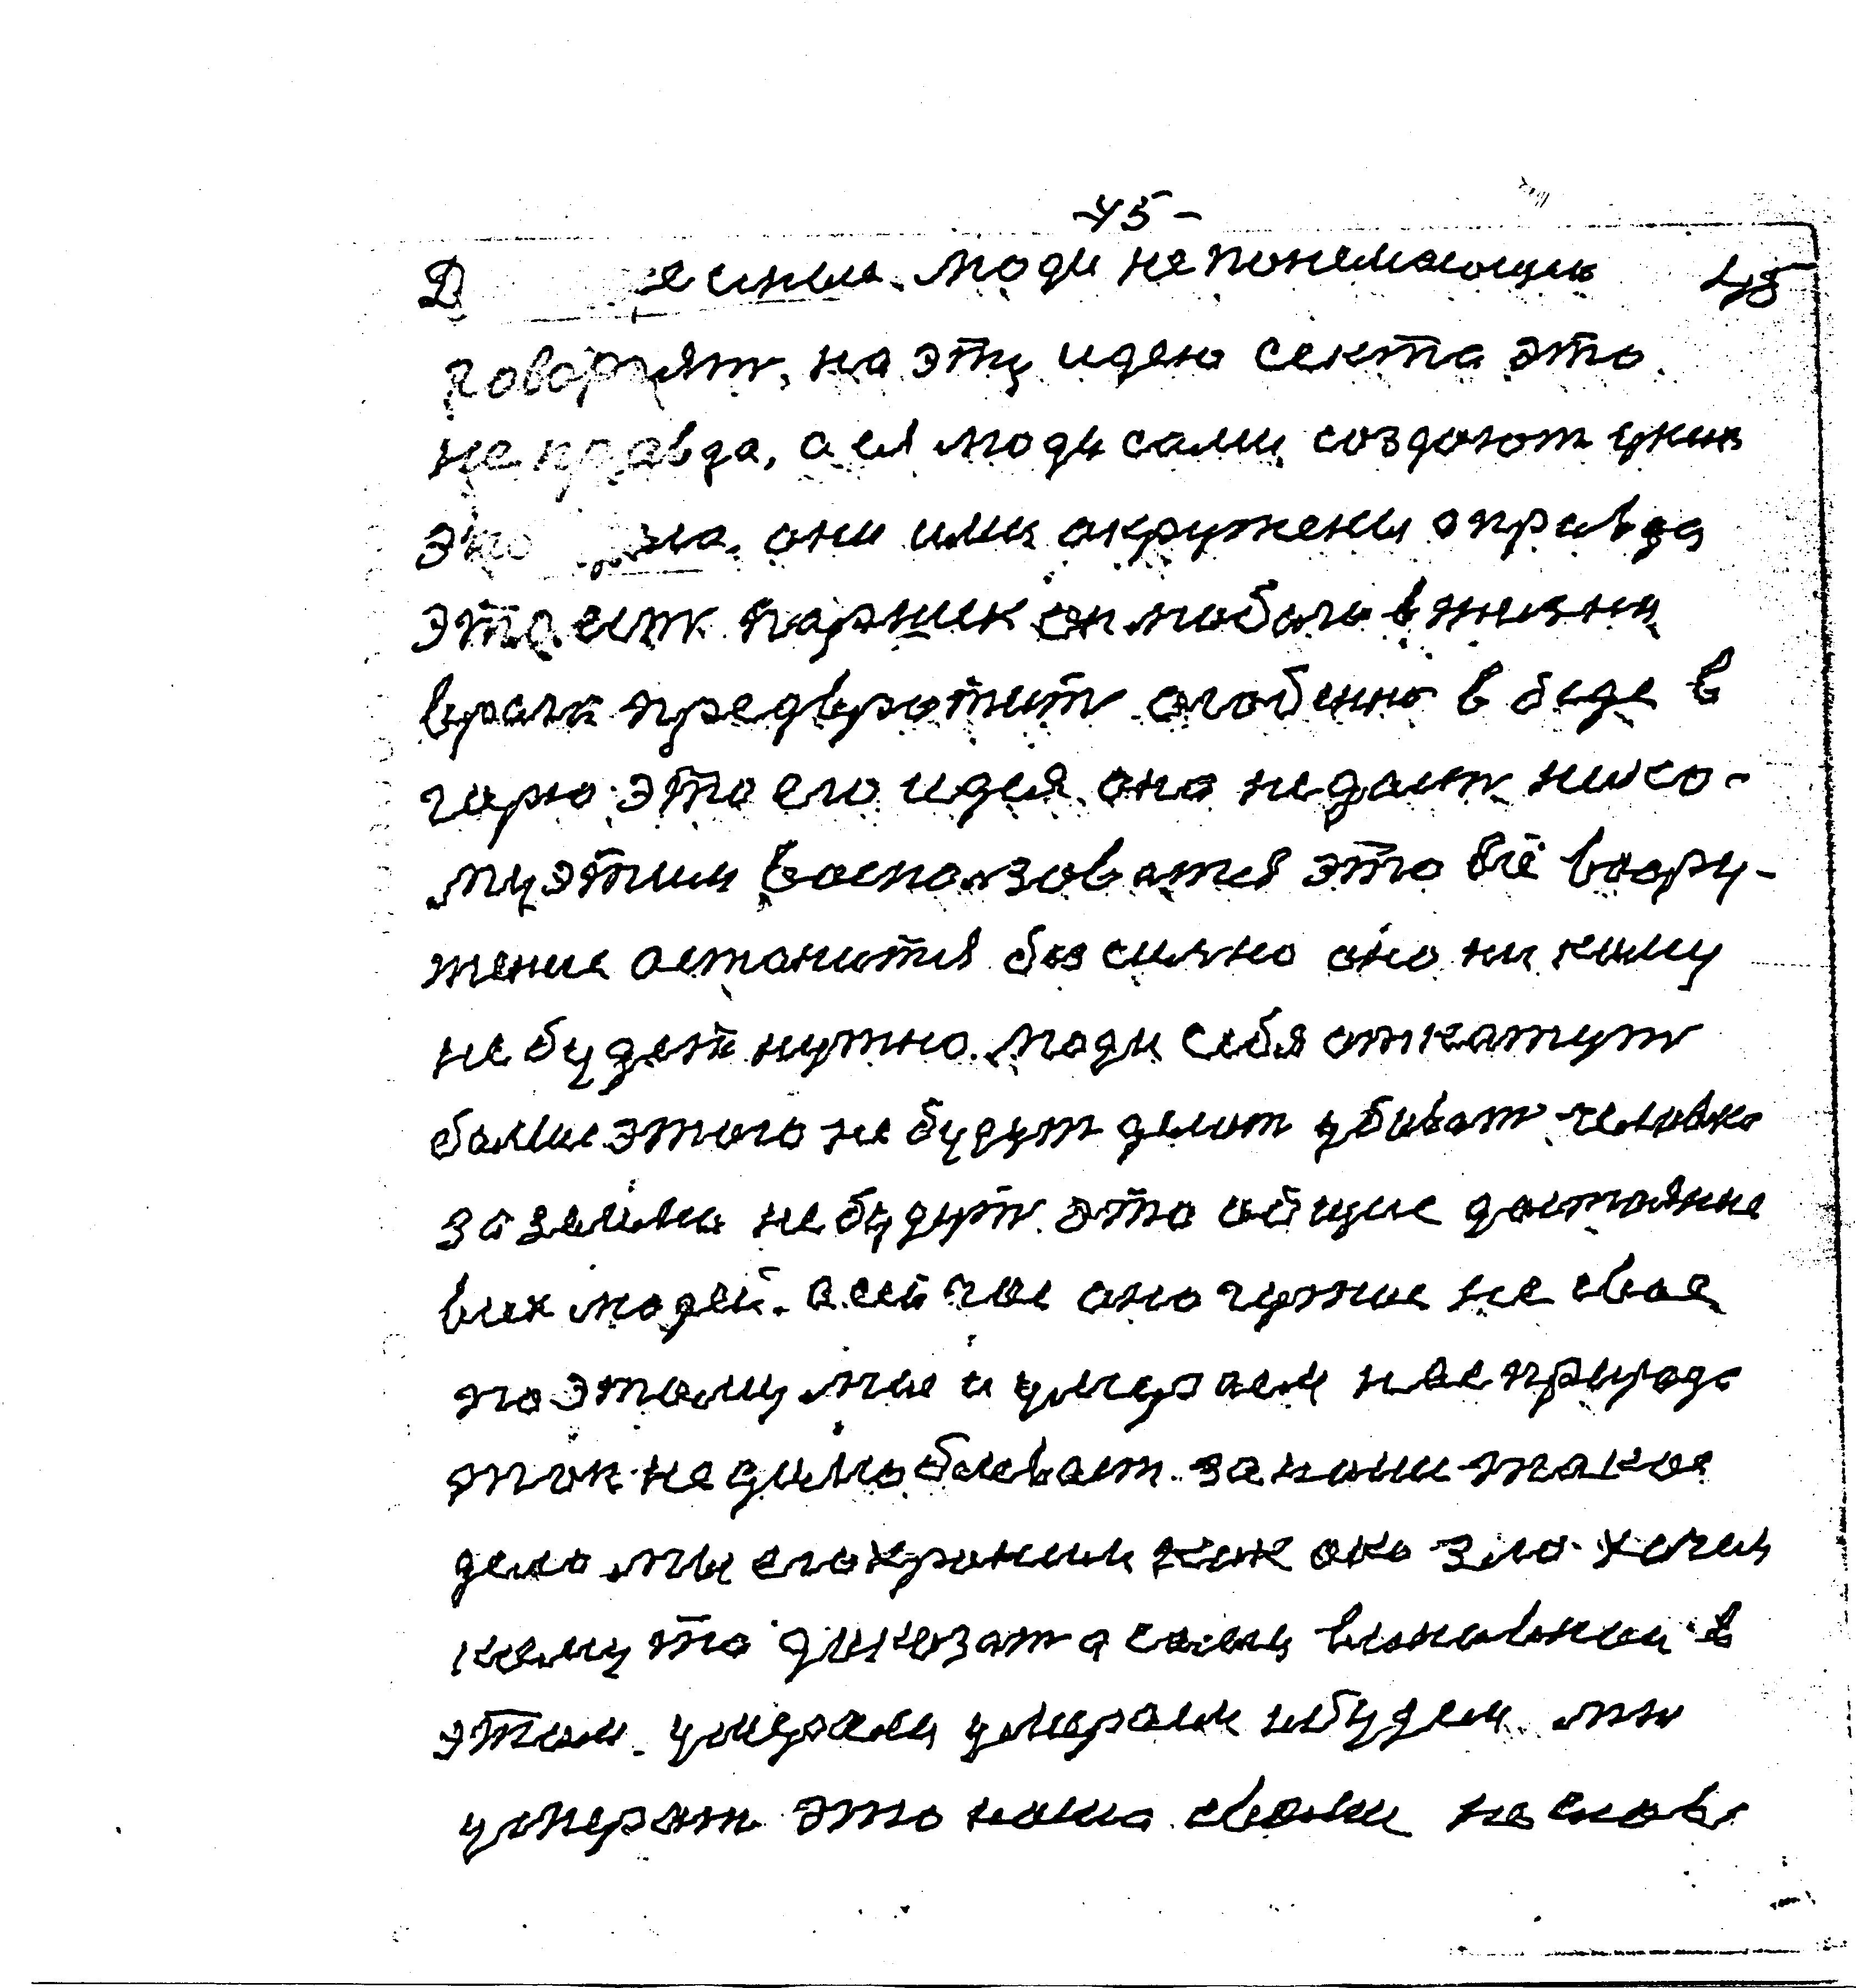 -45-
люди не понемающие 45
говорят, на эту идею секта это
не правда, а ея люди сами создают у них
это они ими окружены а правда
это есть Паршек он любого в жизни
врага предвротит особенно в беде в
горю это его идея она не дает нико-
му этим воспользоватся это всё воору-
жение останится без сильно оно ни кому
не будет нужно. люди себя откажут
больше этого не будут делат убиват человека
за землю не будут это общие достояние
всех людей. а сейчас оно чужое не свое
поэтому мы и умираем нас природа
так не удило бливает за наши такое
дело мы его храним как око зло хочим
кому то доказат а сами виноваты в
этом. умирали умираем и будем мы
умерат это наша